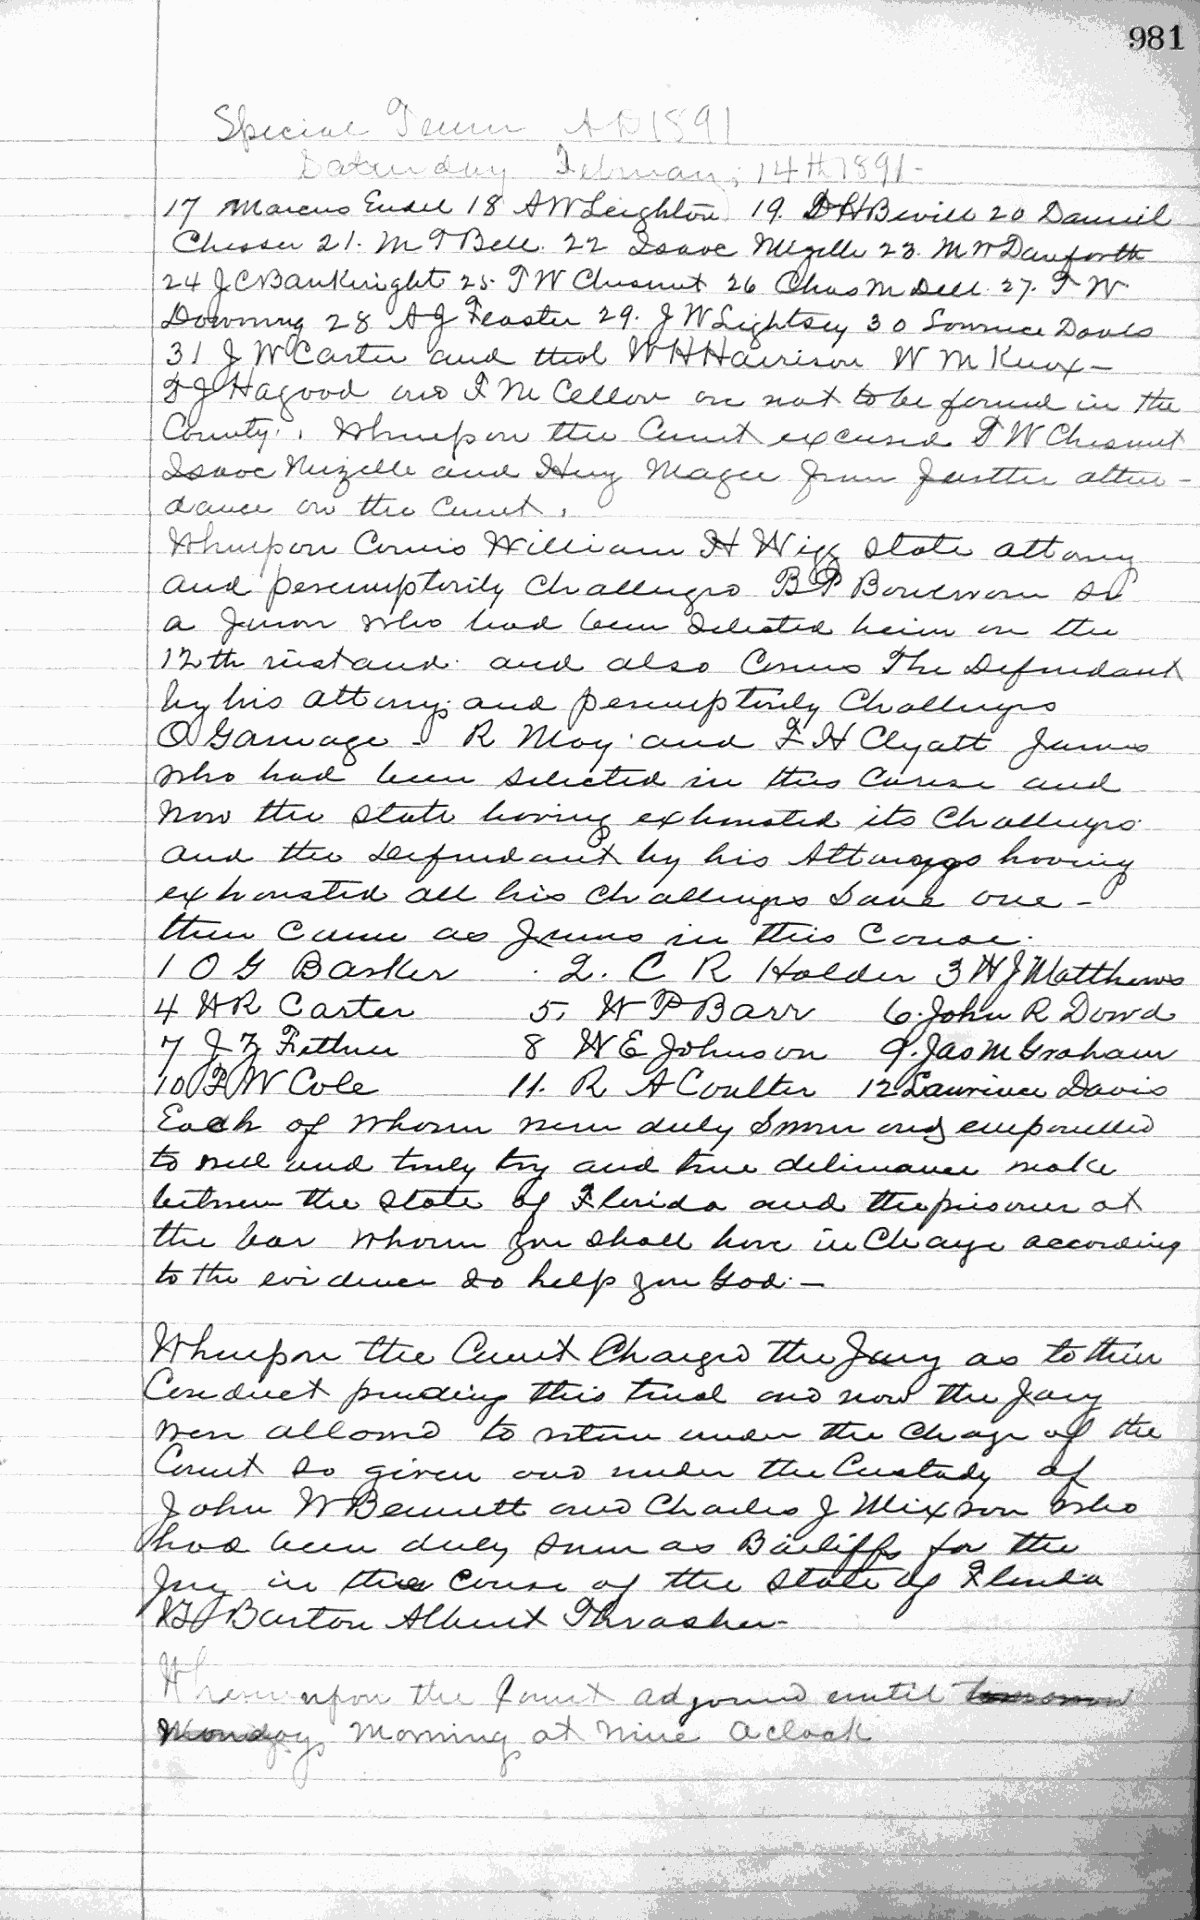 981
Special Term AD 1891
Saturday February 14th 1891-
17 Marcus Endel 18 A W Leighton 19. D H Bevill 20 Daniel
Chesser 21. M T Bell. 22 Isaac Mizelle 23. M W Danforth
24 J C Bauknight 25. T W Chesnut 26 Chas M Dell 27. T W
Downing 28 A J Feaster 29. J W Lightsey 30 Lawrence Davis
31 J W Carter and that W H Harrison W M Knox-
T J Hagood and T Mc Cellon are not to be found in the
County. Whereupon the Court excused T W Chesnut
Isaac Mizelle and Hy Magee from further atten-
dance on the Court.
Whereupon Comes William H Wigg State attorney
and peremptorily Challenges B P Boulware Sr
a Juror who had been Selected herein on the
12th instand. and also Comes The Defendant
by his attorney and peremptorily Challenges
O Gamage - R May and F H Clyatt Jurors
who had been selected in this Cause and
Now the State having exhausted its Challenges
and the Defendant by his Attorneys having
exhausted all his Challenges Save one-
then Came as Jurors in this Cause.
1 O G Barker 2. C R Holder 3 W J Matthews
4 W R Carter 5. W P Barr 6. John R Dowd
7 J Z Fettner 8 W E Johnson 9. Jas M Graham
10 F W Cole 11. R A Coulter 12 Laurince Davis
Each of whom were duly Sworn and empanelled
to well and truly try and true deliverance make
between the State of Florida and the prisoner at
the bar whom you shall have in Charge according
to the evidence so help you God.-
Whereupon the Court Charged the Jury as to their
Conduct pending this trial and now the Jury
were allowed to retire under the Charge of the
Court so given and under the Custody of
John W Bennett and Charles J Mixson who
had been duly sworn as Bailiffs for the
Jury in the Cause of the State of Florida
Barton Albert Thrasher-
Whereupon the Court adjourned until tomorrow
Monday Morning at Nine Oclock